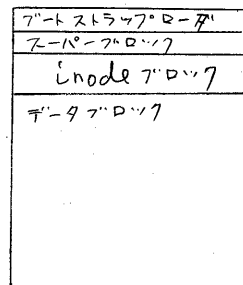 ブートストラップローダ
スーパーブロック
inodeブロック
データブロック